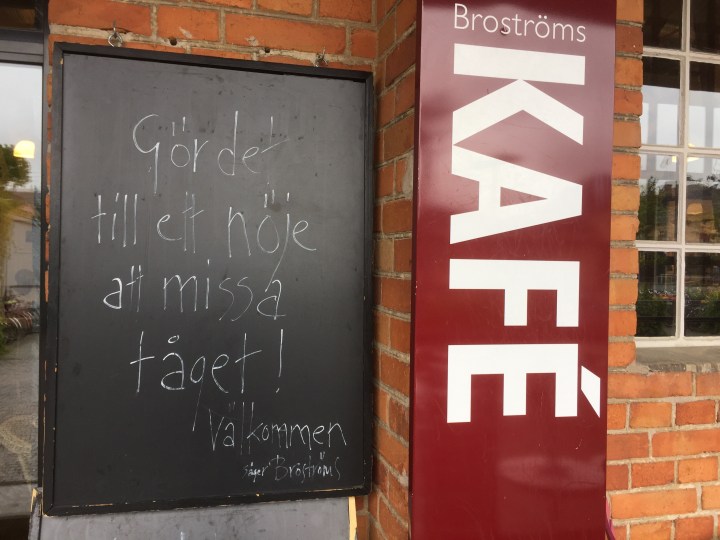 Gör det
till ett nöje
att missa
tåget!
Välkommen
säger Broströms
Broströms
KAFÉ